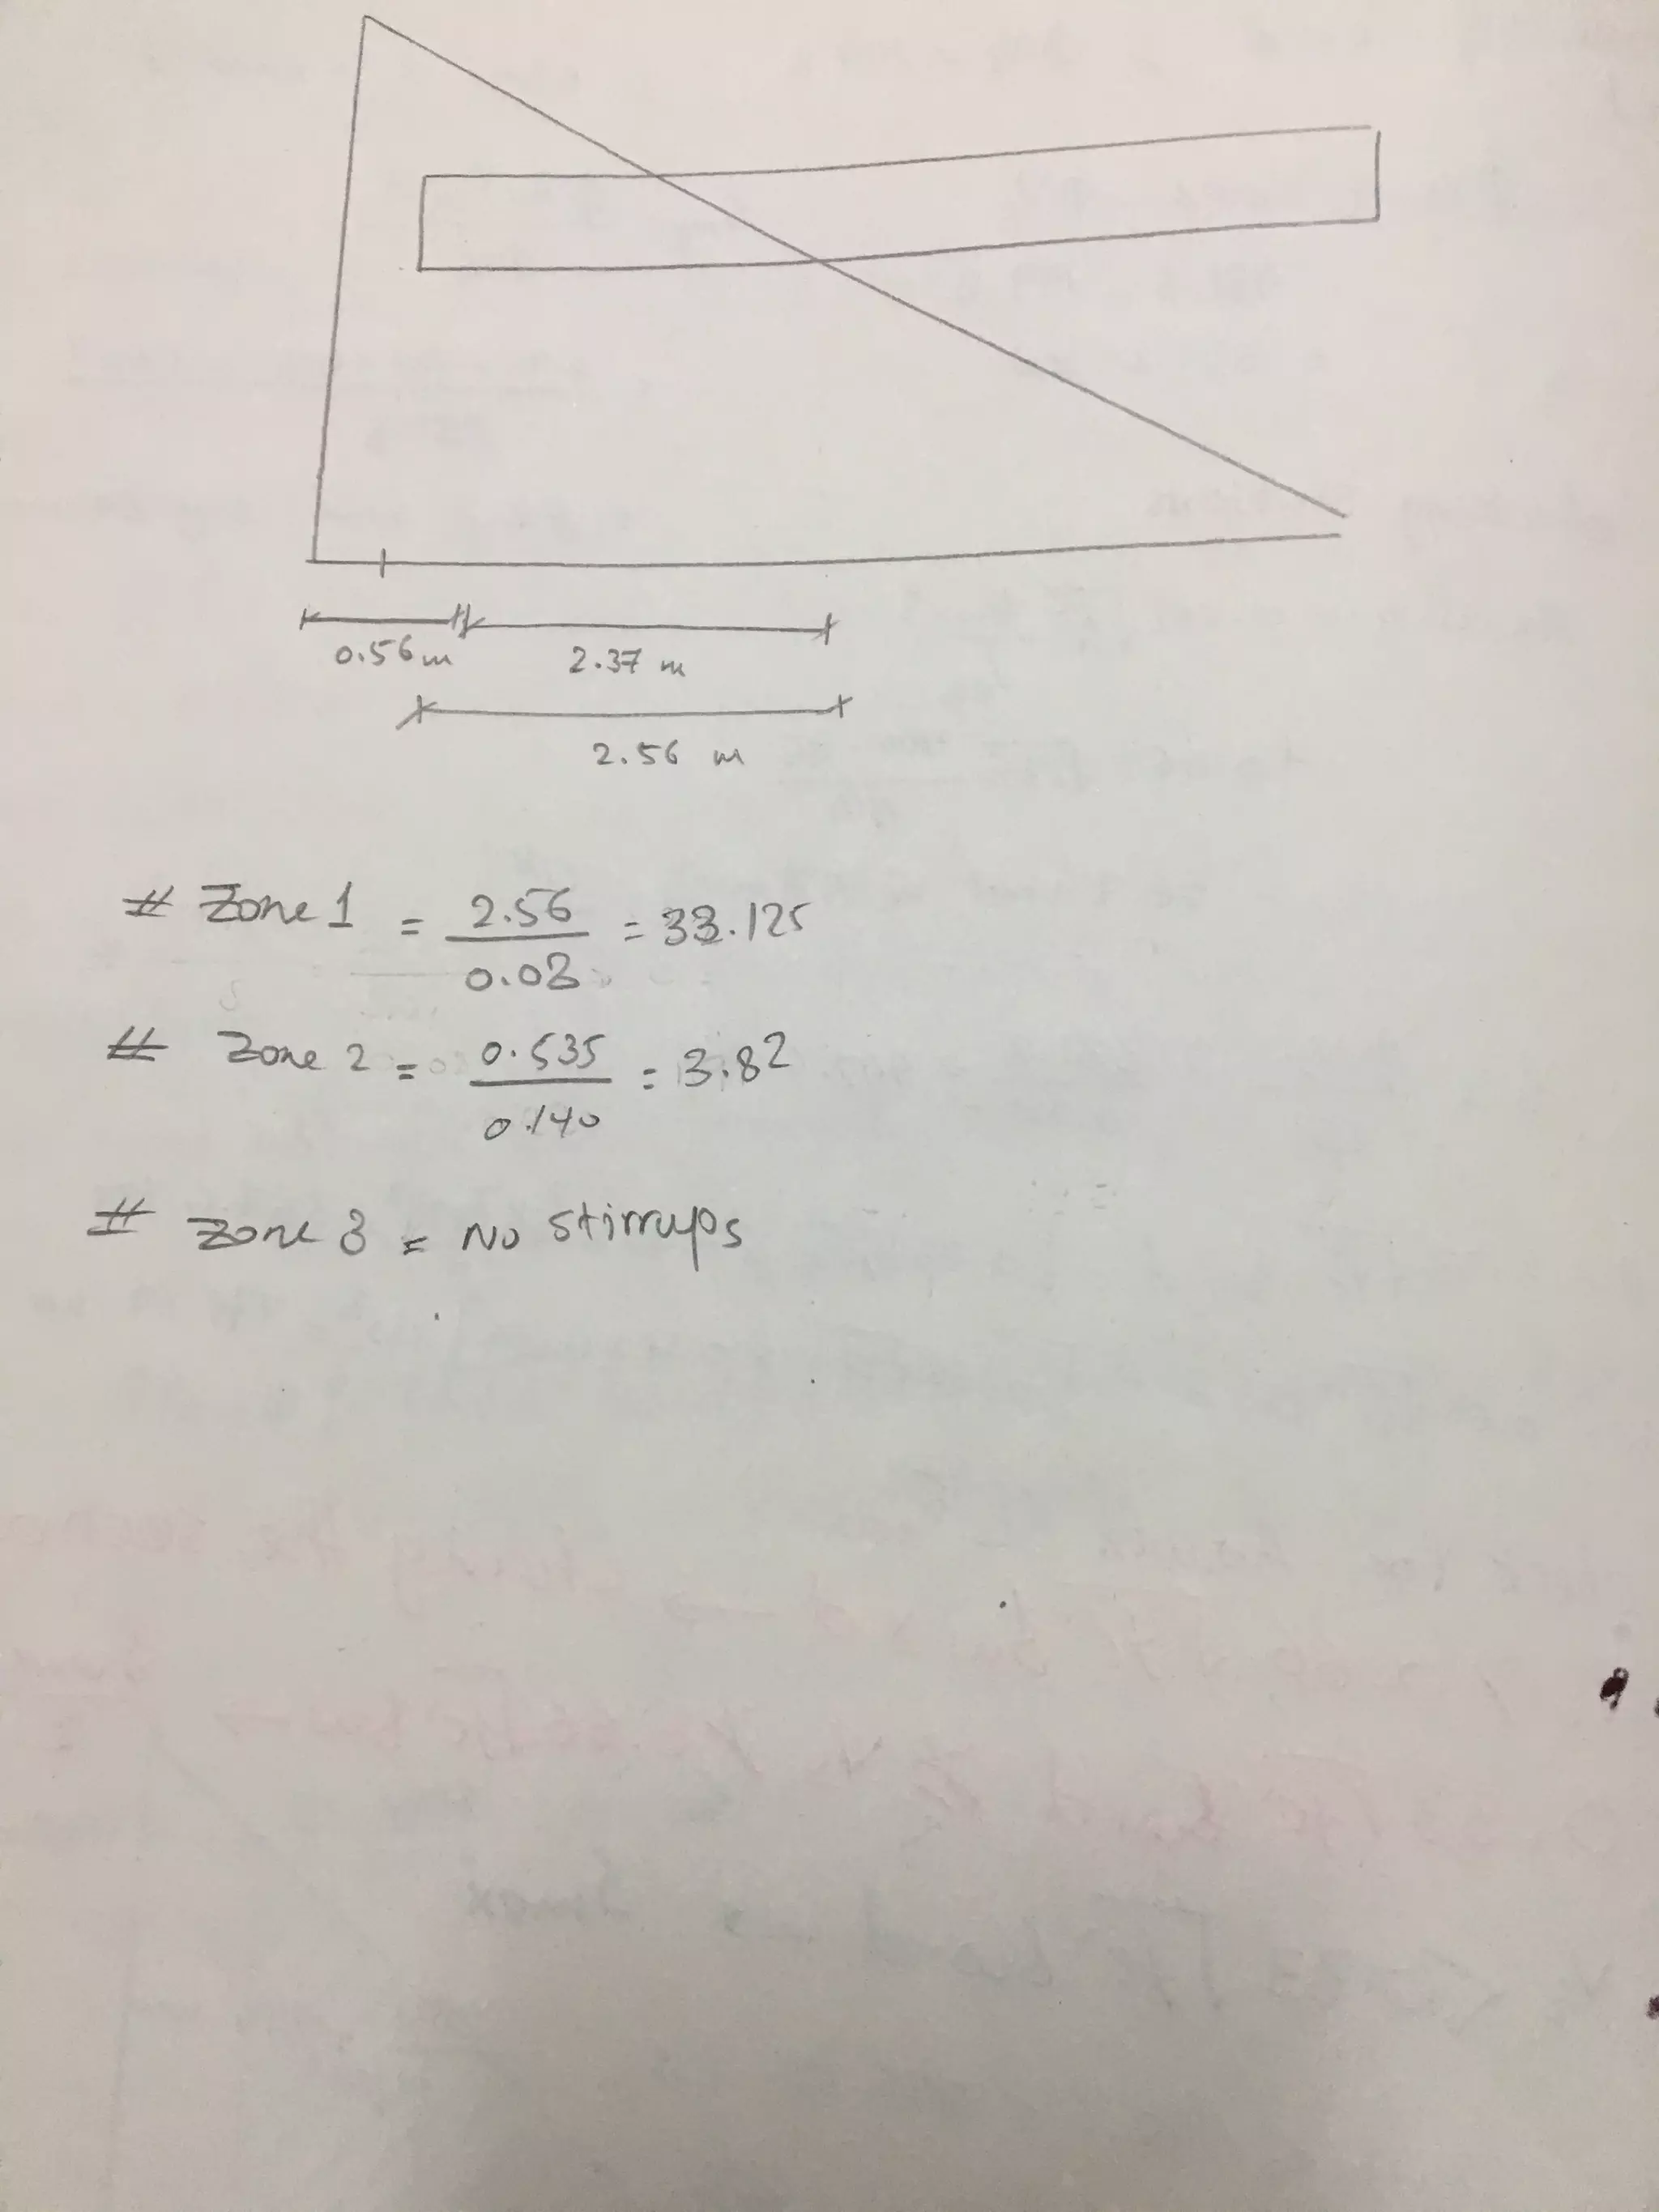 0.56 m 2.37 m
2.56 m
# Zone 1 = 2.56 / 0.08 = 33.125
# Zone 2 = 0.535 / 0.140 = 3.82
# Zone 3 = No stirrups